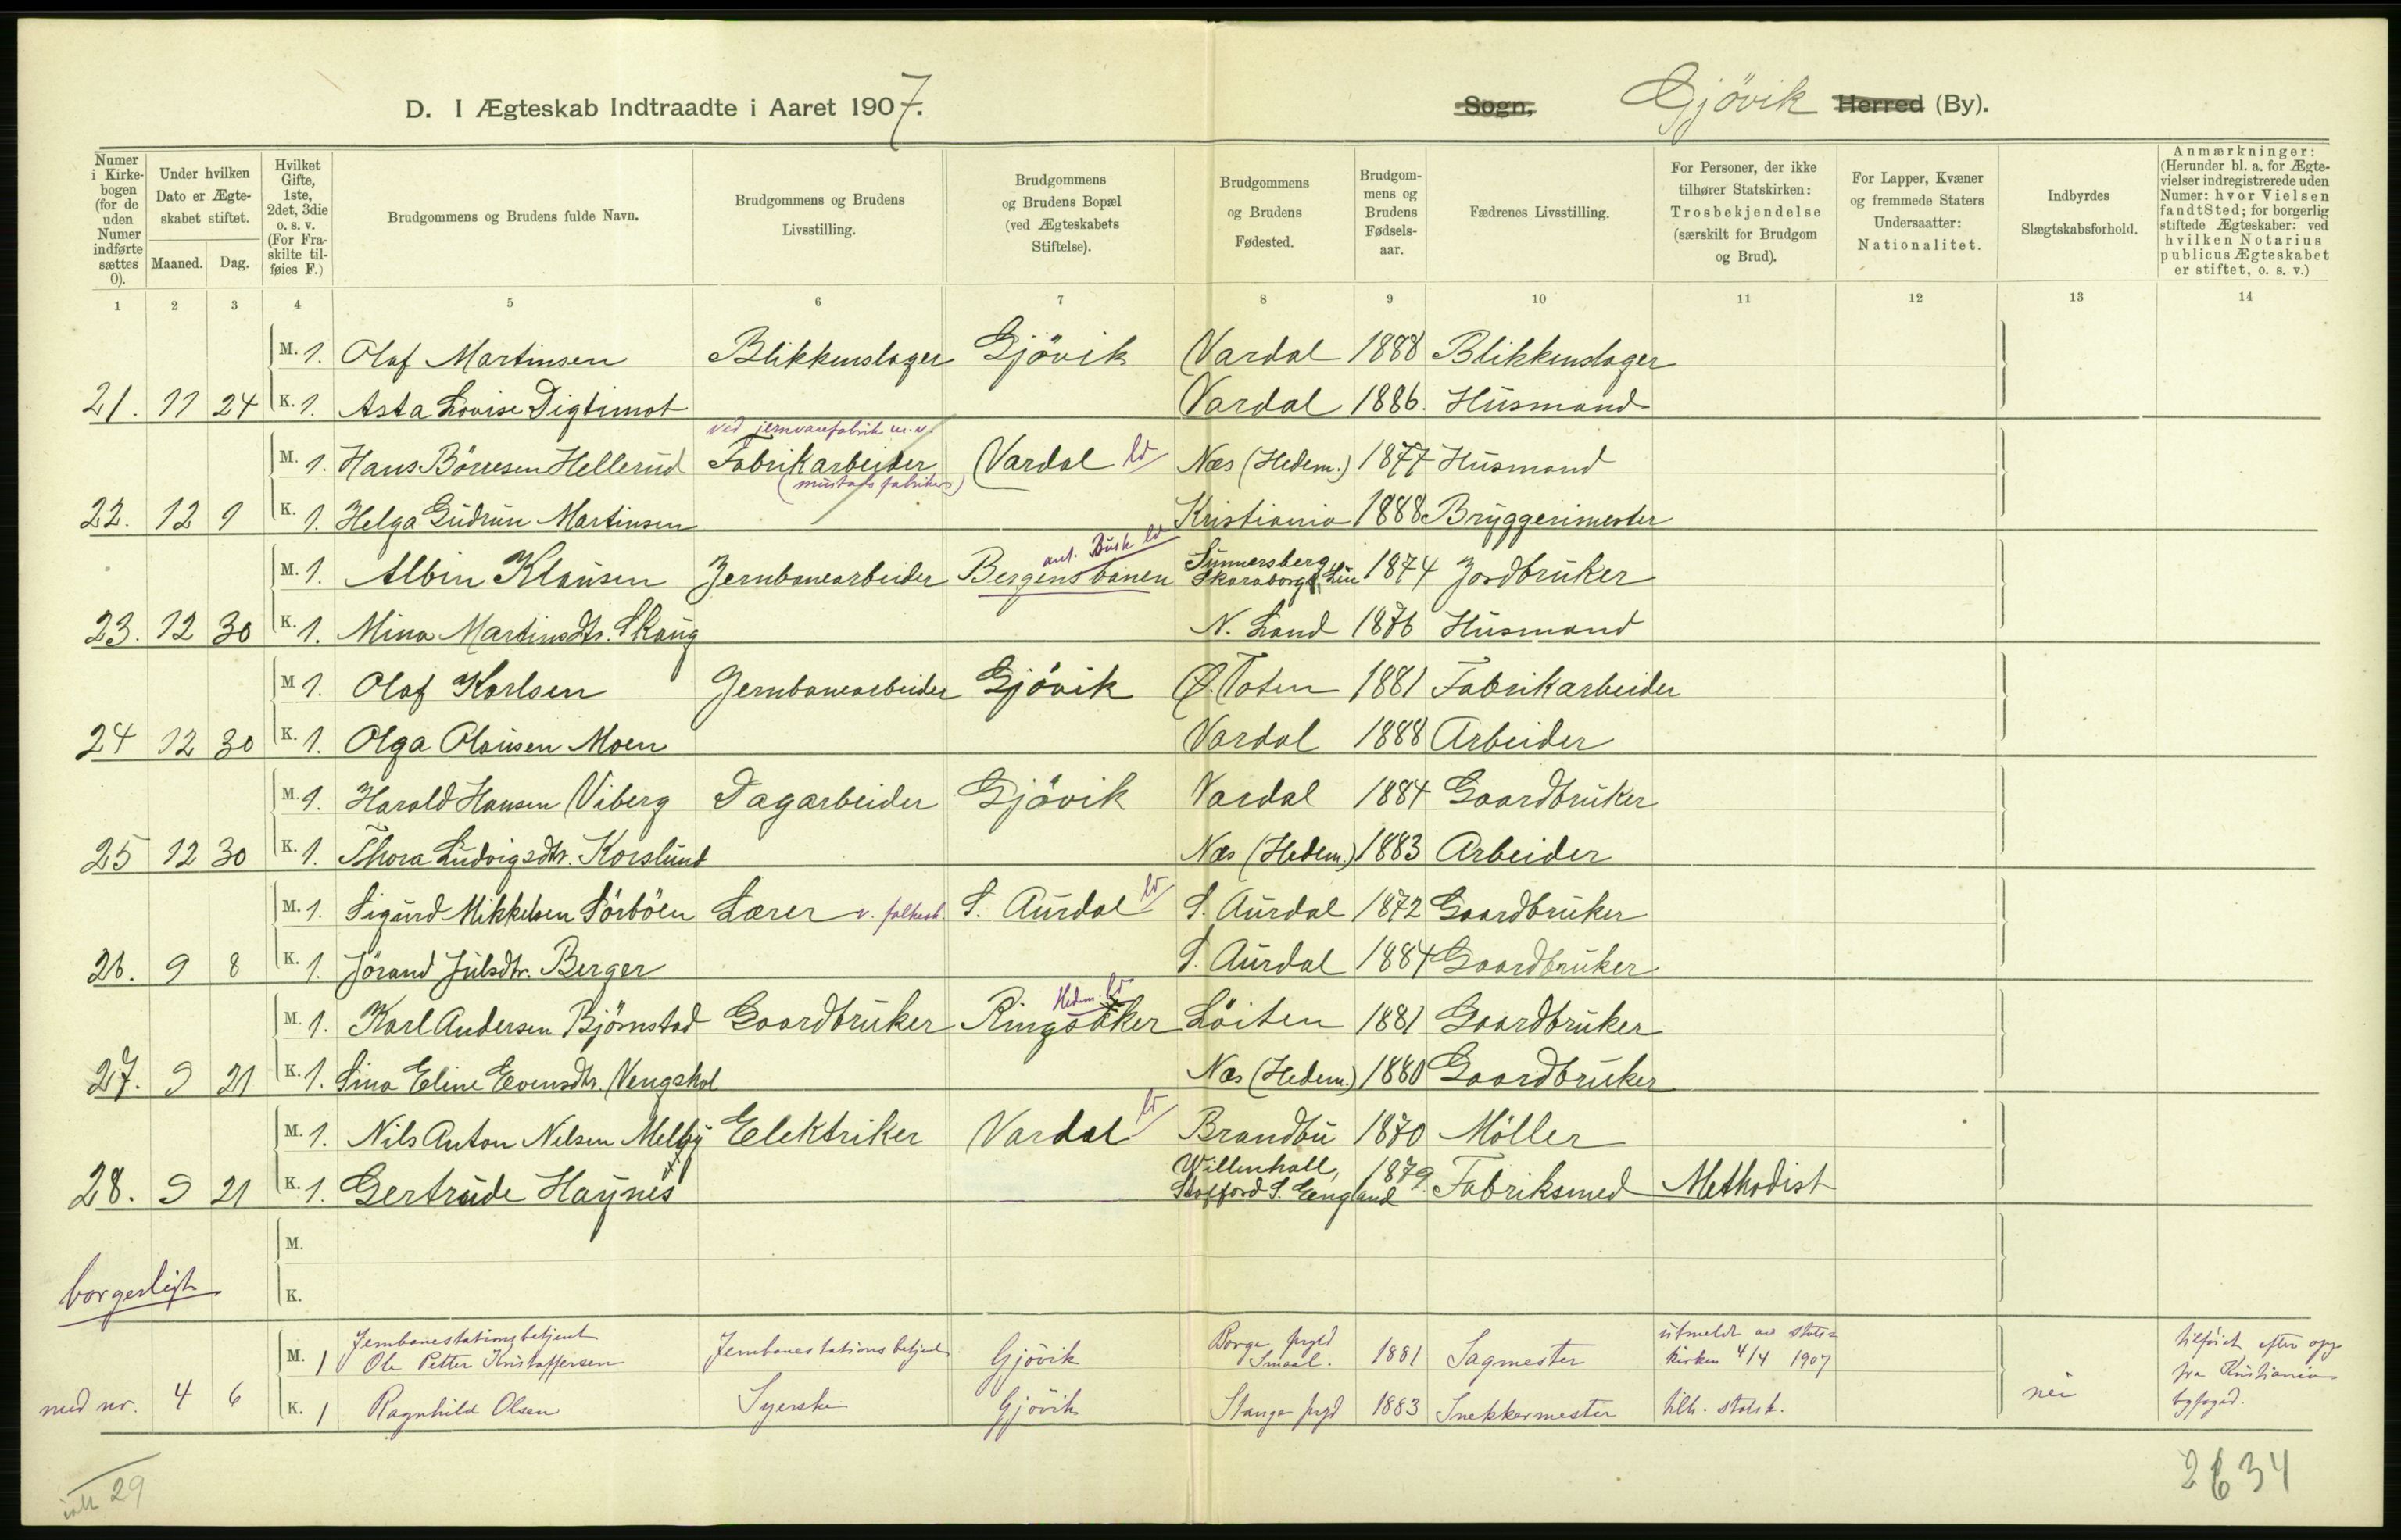 D. I Ægteskab Indtraadte i Aaret 1907. Sogn, Gjövik Herred (By).
Numer i Kirkebogen (for de uden Numer indførte sættes 0).
Under hvilken Dato er Ægteskabet stiftet.
Maaned. Dag.
Hvilket Gifte, 1ste, 2det, 3die o. s. v. (For Fraskilte tilføies F.)
Brudgommens og Brudens fulde Navn.
Brudgommens og Brudens Livsstilling.
Brudgommens og Brudens Bopæl (ved Ægteskabets Stiftelse).
Brudgommens og Brudens Fødested.
Brudgommens og Brudens Fødselsaar.
Fædrenes Livsstilling.
For Personer, der ikke tilhører Statskirken: Trosbekjendelse (særskilt for Brudgom og Brud).
For Lapper, Kvæner og fremmede Staters Undersaatter: Nationalitet.
Indbyrdes Slægtskabsforhold.
Anmærkninger: (Herunder bl. a. for Ægtevielser indregistrerede uden Numer: hvor Vielsen fandt Sted; for borgerlig stiftede Ægteskaber: ved hvilken Notarius publicus Ægteskabet er stiftet, o. s. v.)
1 2 3 4 5 6 7 8 9 10 11 12 13 14
M. 1. Olaf Martinsen Blikkenslager Gjövik Vardal 1888 Blikkenslager
21. 11 24 K. 1. Asta Lovise Digtimot Vardal 1886. Husmand
ved jernvarefabrik m.v.
M. 1. Hans Börresen Hellerud Fabrikarbeider Vardal ld Næs (Hedem.) 1877 Husmand
(Mustads fabriker)
22. 12 1 K. 1. Helga Gudrun Martinsen Kristiania 1888 Bryggerimester
ant. Busk ld
M. 1. Albin Klausen Jernbanearbeider Bergensbanen Sunnersberg Skaraborgs Län 1874 Jordbruker
23. 12 30 K. 1. Mina Martinsdtr. Skaug N. Land 1876 Husmand
M 1. Olaf Karlsen Jernbanearbeider Gjövik Ø. Toten 1881 Fabrikarbeider
24 12 30 K. 1. Olga Olausen Moen Vardal 1888 Arbeider
M. 1. Harald Hansen Viberg Dagarbeider Gjövik Vardal 1884 Gaardbruker
25 12 30 K. 1. Thora Ludvigsdtr. Korslund Næs (Hedem.) 1883 Arbeider
M. 1. Sigurd Mikkelsen Sörböen Lærer v. folkesk. S. Aurdal ld S. Aurdal 1872 Gaardbruker
26. 9 8 K. 1. Jörand Julsdtr. Berger S. Aurdal 1884 Gaardbruker
Hedem. ld
M. 1. Karl Andersen Björnstad Gaardbruker Ringsaker Löiten 1881 Gaardbruker
27. 9 21 K. 1. Sina Eline Evensdtr. Vengskol Næs (Hedem.) 1880 Gaardbruker
M. 1. Nils Anton Nilsen Melby Elektriker Vardal ld Brandbu 1870 Möller
28. 9 21 K. 1. Gertrude Haynes Willenhall, Stafford S. England 1879. Fabriksmed Methodist
M.
borgerligt K.
M. 1 Jernbanestationsbetjent Ole Petter Kristoffersen Jernbanestationsbetjent Gjövik Borge prgld Smaal. 1881 Sagmester utmeldt av statskirken 4/4 1907 tilföiet efter opg. fra Kristiania byfoged.
med nr. 4 6 K. 1 Ragnhild Olsen Syerske Gjövik Stange prgd 1883 Snekkermester tilh. statsk. nei
ialt 29
2634